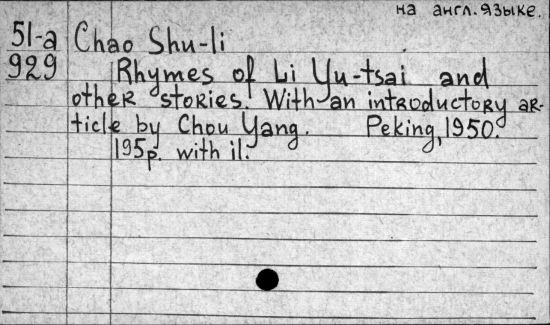 на англ.языке.
51-а Chao Shu-li
929 Rhymes of Li Yu-tsai and
other stories. With an introductory ar-
ticle by Chou Yang. Peking, 1950.
195p. with il.